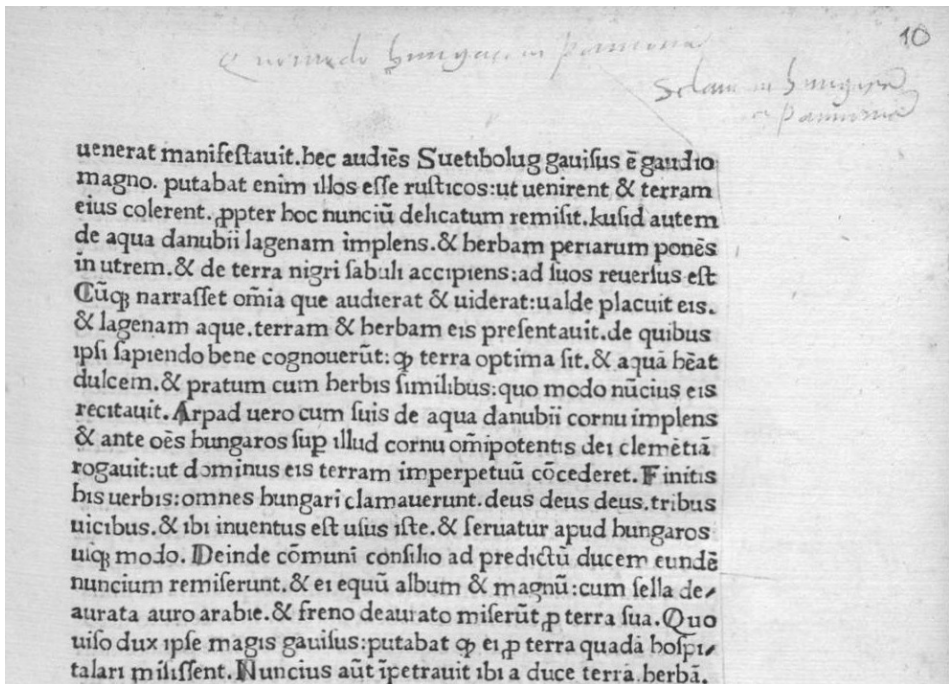 10
Quomodo hungari in pannonia
in hungaria
pannonia
uenerat manifestauit.hec audiēs Suetibolug gauisus ē gaudio
magno. putabat enim illos esse rusticos:ut uenirent & terram
eius colerent. ꝓpter hoc nunciū delicatum remisit.kusid autem
de aqua danubii lagenam implens.& herbam periarum ponēs
in utrem.& de terra nigri sabuli accipiens:ad suos reuersus est
Cūqꝫ narrasset om̄ia que audierat & uiderat:ualde placuit eis.
& lagenam aque.terram & herbam eis presentauit.de quibus
ipsi sapiendo bene cognouerūt: ꝙ terra optima sit.& aquā hēat
dulcem.& pratum cum herbis similibus:quo modo nūcius eis
recitauit. Arpad uero cum suis de aqua danubii cornu implens
& ante oēs hungaros suꝑ illud cornu om̄ipotentis dei clemētiā
rogauit:ut dominus eis terram imperpetuū cōcederet. Finitis
his uerbis:omnes hungari clamauerunt.deus deus deus.tribus
uicibus.& ibi inuentus est usus iste.& seruatur apud hungaros
uiqꝫ modo. Deinde cōmuni consilio ad predictū ducem eundē
nuncium remiserunt.& ei equū album & magnū:cum sella de/
aurata auro arabie.& freno deaurato miserūt ꝓ terra sua. Quo
uiso dux ipse magis gauisus:putabat ꝙ ei ꝓ terra quadā hospi/
talari misissent. Nuncius aūt īpetrauit ibi a duce terrā.herbā.